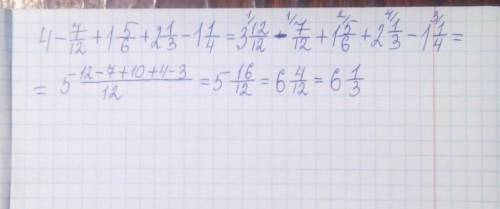 4 - 7/12 + 1 5/6 + 2 1/3 - 1 1/4 = 3 12/12 ^1/ - 7/12 ^1/ + 1 5/6 ^2/ + 2 1/3 ^4/ - 1 1/4 ^3/ =
= 5 (12-7+10+4-3)/12 = 5 16/12 = 6 4/12 = 6 1/3